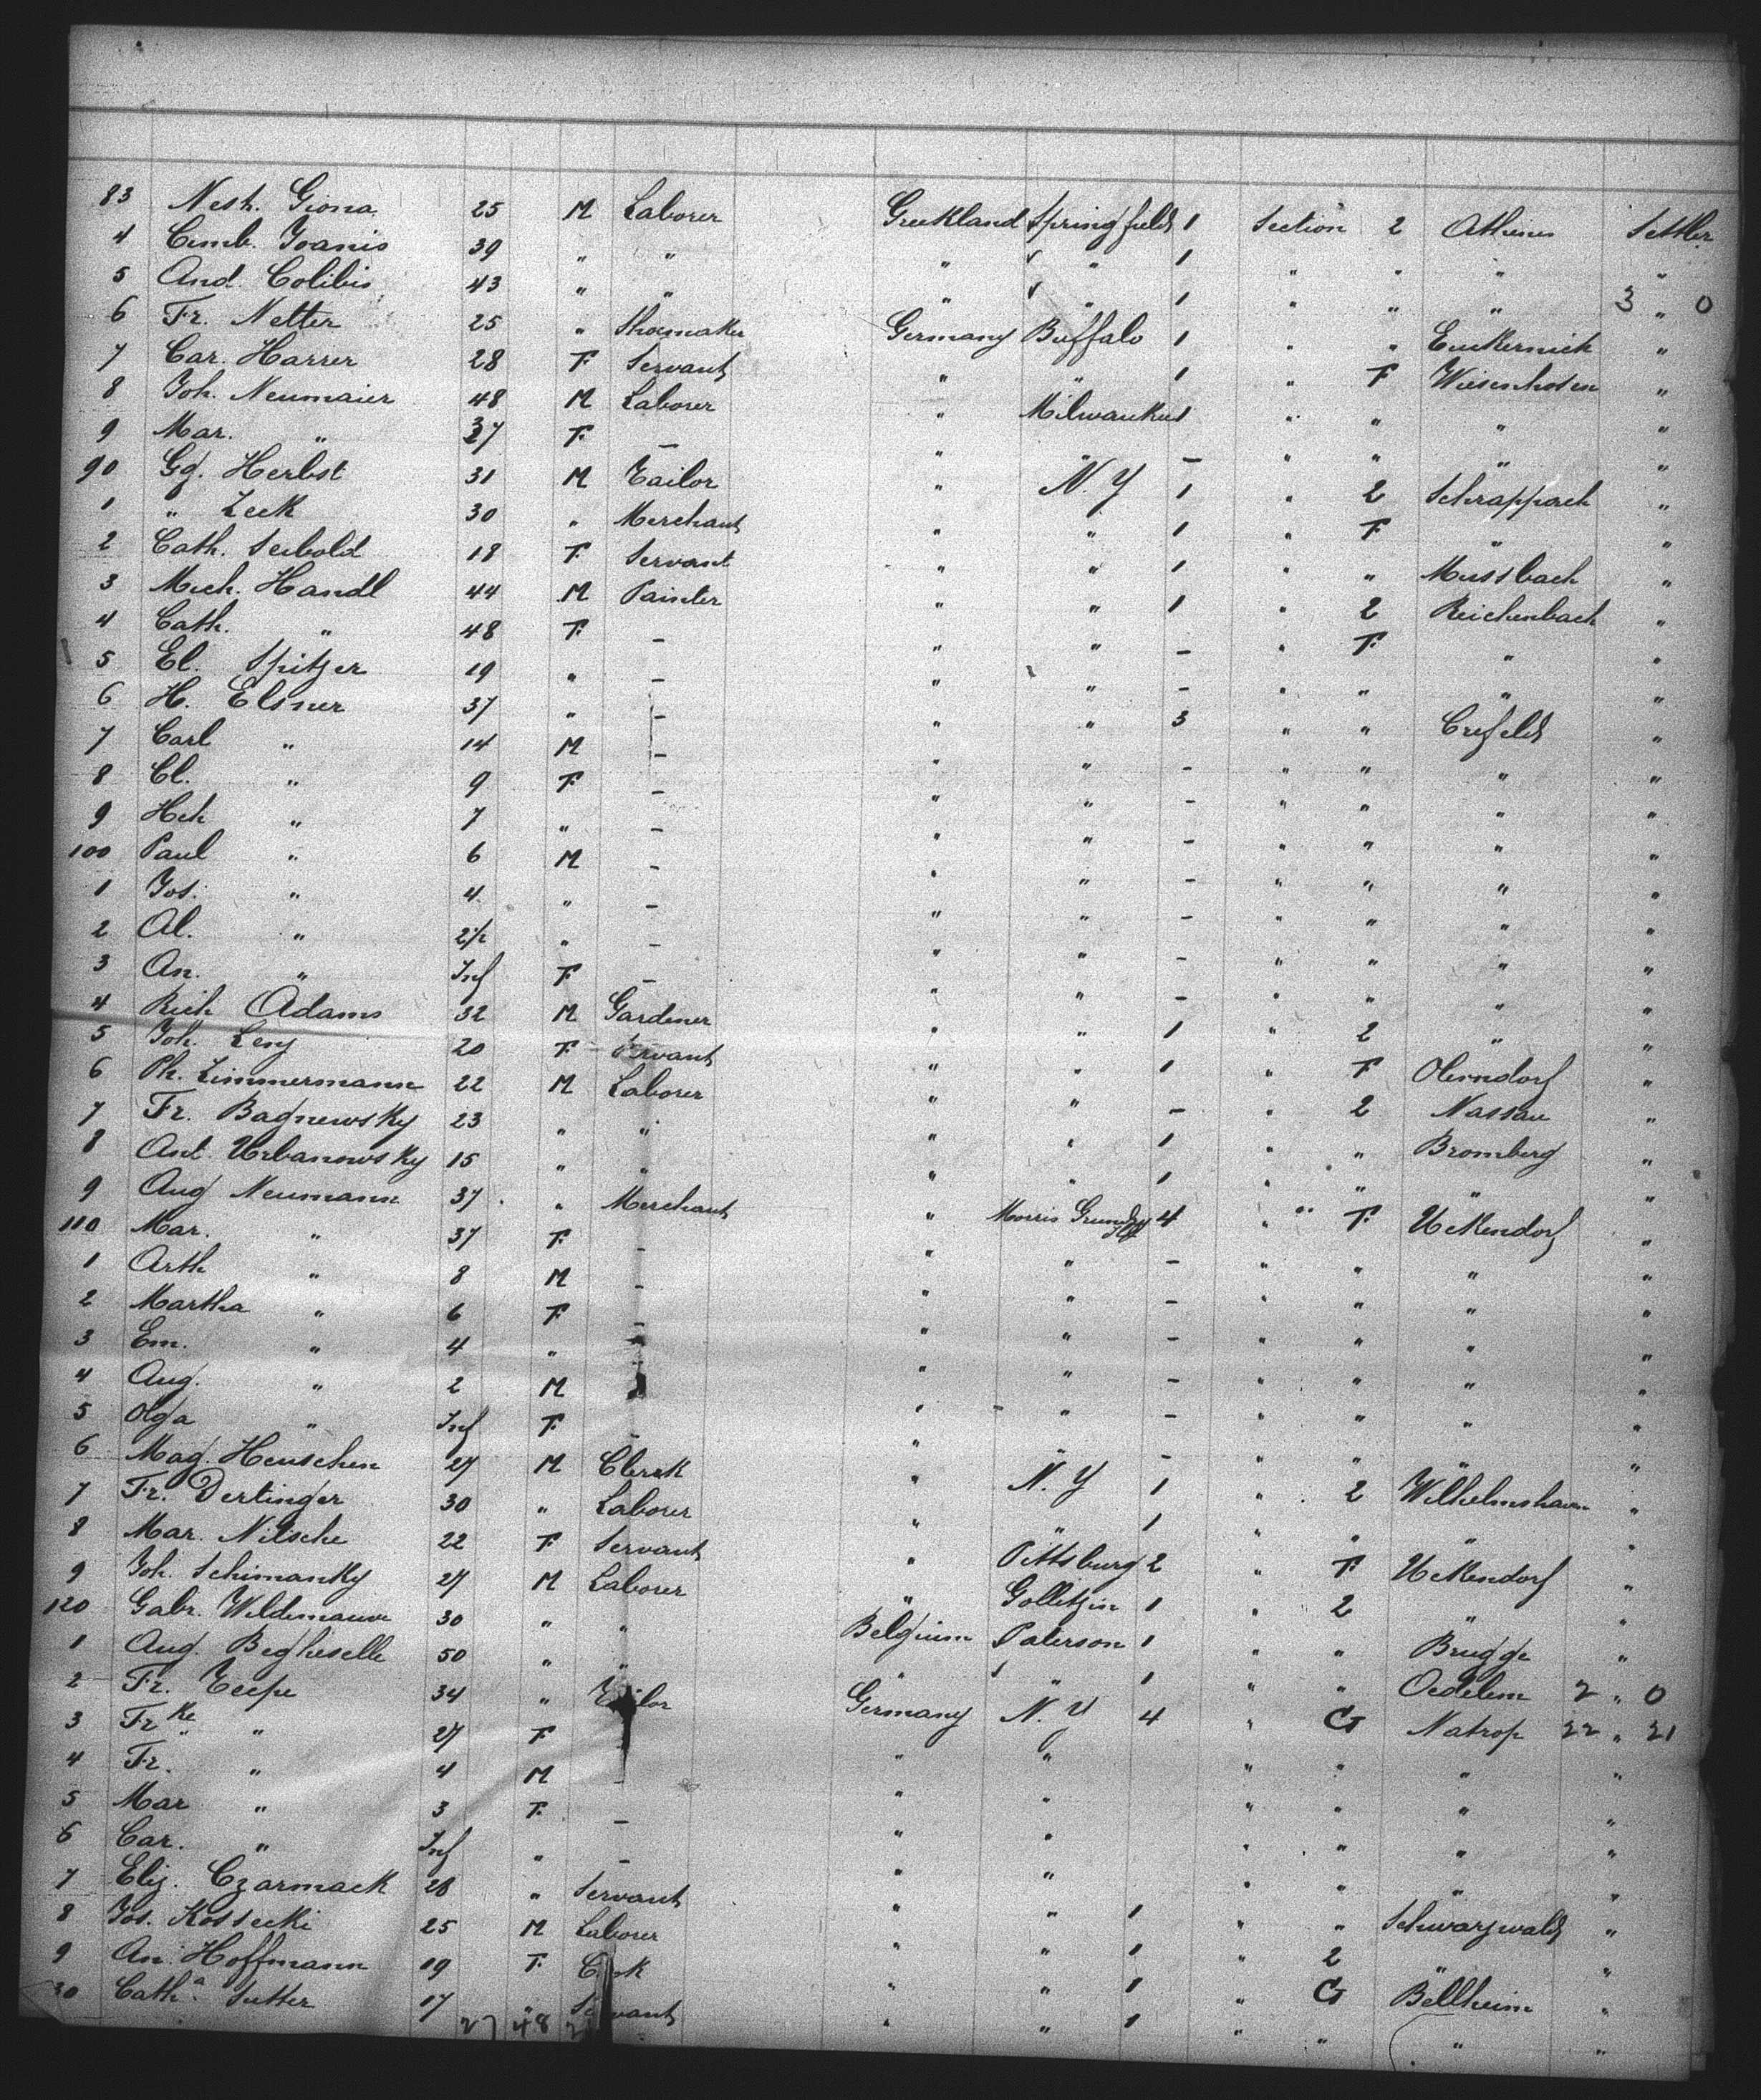 83 Nesh. Giona 25 M Laborer Greekland Springfield 1 Section 2 Athenes Settler
4 Cemb. Joanis 39 " " " " 1 " " " "
5 And. Colibis 43 " " " " 1 " " " 3 " 0
6 Fr. Netter 25 " Shoemaker Germany Buffalo 1 " " "
7 Car. Harrer 28 F Servant " " 1 " F Wiesenhofen "
8 Joh. Neumaier 48 M Laborer " Milwaukee 1 " " " "
9 Mar. " 37 F - " " - " " " "
90 Gg. Herbst 31 M Tailor " N.Y 1 " 2 Schrappach "
1 " Zeck 30 " Merchant " " 1 " F " "
2 Cath. Seibold 18 F Servant " " 1 " " Mussbach "
3 Mich. Handl 44 M Painter " " 1 " 2 Reichenbach "
4 Cath. " 48 F - " " - " F " "
5 El. Spitzer 19 " - " " - " " " "
6 H. Elsner 37 " - " " 3 " " Crefeld "
7 Carl " 14 M - " " - " " " "
8 Cl. " 9 F - " " - " " " "
9 Hch " 7 " - " " - " " " "
100 Paul " 6 M - " " - " " " "
1 Jos. " 4 " - " " - " " " "
2 Al. " 2½ " - " " - " " " "
3 An. " Inf F - " " - " " " "
4 Rich Adams 32 M Gardener " " 1 " 2 " "
5 Joh. Leny 20 F Servant " " 1 " F Oberndorf "
6 Ph. Zimmermann 22 M Laborer " " - " 2 Nassau "
7 Fr. Bagnewsky 23 " " " " 1 " " Bromberg "
8 Ant. Urbanowsky 15 " " " " 1 " " " "
9 Aug Neumann 37 " Merchant " Morris Grundy Ill 4 " F Uckendorf "
110 Mar. " 37 F - " " - " " " "
1 Arth " 8 M - " " - " " " "
2 Martha " 6 F - " " - " " " "
3 Em. " 4 " - " " - " " " "
4 Aug. " 2 M " " - " " " "
5 Olga " Inf F - " " - " " " "
6 Mag. Heuschen 27 M Clerk " N.Y 1 " 2 Wilhelmshaven "
7 Fr. Dertinger 30 " Laborer " " 1 " " " "
8 Mar. Nitsche 22 F Servant " Pittsburg 2 " F Uckendorf "
9 Joh. Schimanky 27 M Laborer " Golletzin 1 " 2 " "
120 Gabr. Wildemauve 30 " " Belgium Paterson 1 " " Brugge "
1 Aug. Begheselle 50 " " " " 1 " " Oedelem 2 " 0
2 Fr. Teepe 34 " Tailor Germany N.Y 4 " G Natrop 22 " 21
3 Frke " 27 F " " " " " "
4 Fr. " 4 M - " " " " " "
5 Mar " 3 F - " " " " " "
6 Car. " Inf " - " " " " " "
7 Eliz. Czarmack 28 " Servant " " 1 " " Schwarzwald "
8 Jos. Kossecki 25 M Laborer " " 1 " 2 " "
9 An. Hoffmann 19 F Cook " " 1 " G Bellheim "
30 Catha. Sutter 17 " Servant " " 1 " " " "
27 48